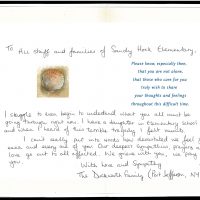 To All staff and families of Sandy Hook Elementary,
Please know, especially now,
that you are not alone,
that those who care for you
truly wish to share
your thoughts and feelings
throughout this difficult time.
I struggle to even begin to understand what you all must be
going through right now. I have a daughter in Elementary School
and when I heard of this terrible tragedy I felt numb.
I can't really put into words how devastated we feel for
each and every one of you. Our deepest sympathies, prayers and
love go out to all affected. We grieve with you, we pray for
you.
With love and Sympathy
The Family (Port Jefferson, NY)